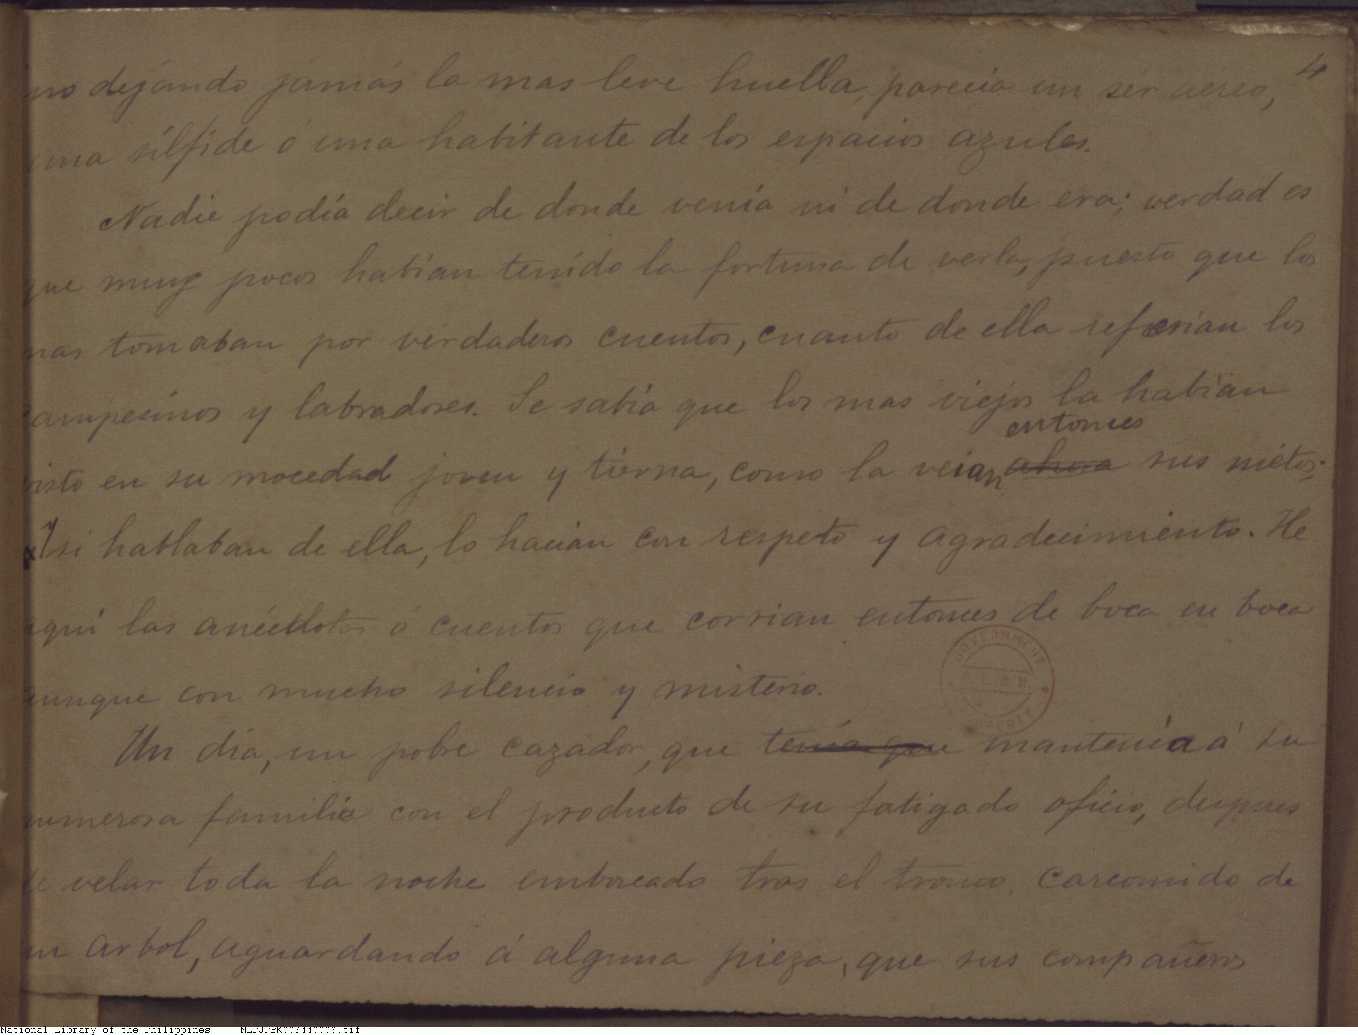 4
no dejando jamás la mas leve huella, parecia un sér aéreo,
una sílfide ó una habitante de los espacios azules.
Nadie podía decir de donde venía ni de donde era; verdad es
que muy pocos habian tenido la fortuna de verla, puesto que los
mas tomaban por verdaderos cuentos, cuanto de ella referian los
campesinos y labradores. Se sabía que los mas viejos la habían
entonces
visto en su mocedad joven y tierna, como la veian ahora sus nietos;
y si hablaban de ella, lo hacían con respeto y agradecimiento. He
aquí las anécdotas ó cuentos que corrian entonces de boca en boca
aunque con mucho silencio y misterio.
Un día, un pobre cazador, que tenía que mantenía á su
numerosa familia con el producto de su fatigado oficio, despues
de velar toda la noche emboscado tras el tronco carcomido de
un arbol, aguardando á alguna pieza, que sus compañeros
GOVERNMENT
National Library of the Philippines